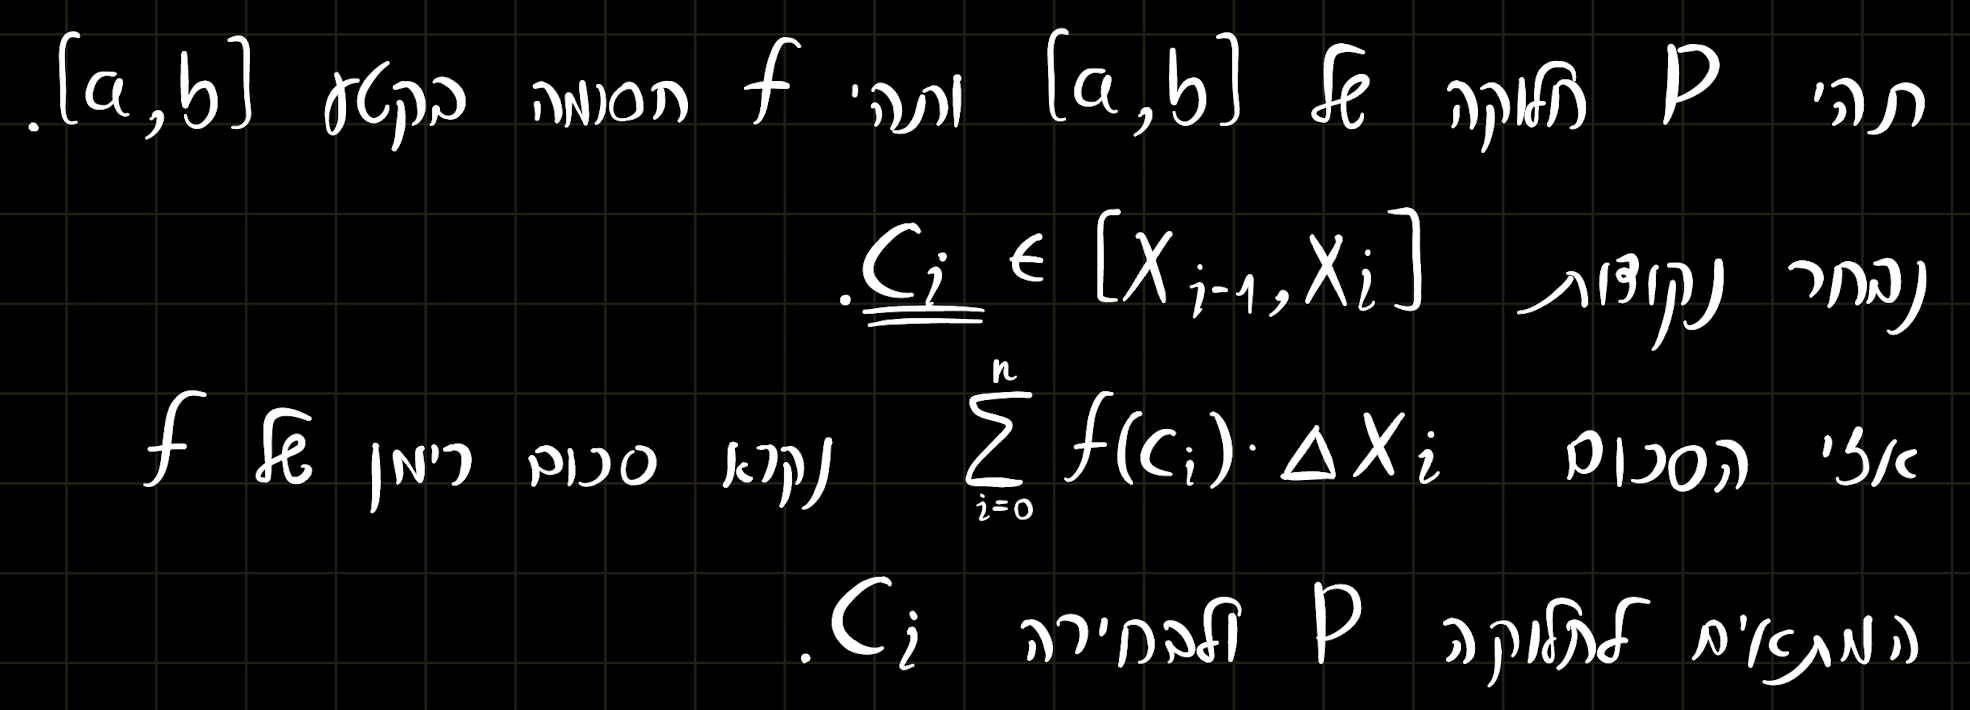 תהי P חלוקה של [a,b] ותהי f חסומה בקטע [a,b].
נבחר נקודות C_i ∈ [X_{i-1}, X_i].
אזי הסכום \sum_{i=0}^{n} f(c_i)·ΔX_i נקרא סכום רימן של f
המתאים לחלוקה P ולבחירה C_i.